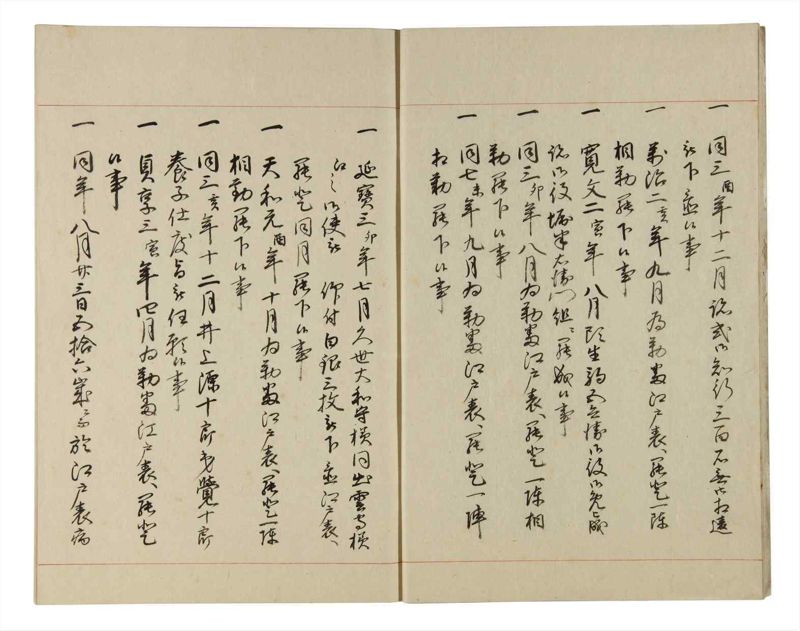 一 同三酉年十二月 跡式御知行三百石無御相違
被下置候事
一 萬治二亥年九月為勤番江戸表、罷登一陣
相勤罷下候事
一 寛文二寅年八月 生駒五兵衛御役御免
跡御役堀半右衛門組、罷成候事
一 同三卯年八月為勤番江戸表、罷登一陣相
勤罷下候事
一 同七未年九月為勤番江戸表、罷登一陣
相勤罷下候事
一 延寶三卯年七月久世大和守様同出雲守様
江之御使被 仰付白銀三枚被下置江戸表、
罷登同月罷下候事
一 天和元酉年十月為勤番江戸表、罷登一陣
相勤罷下候事
一 同三亥年十二月井上源十郎弟覺十郎
養子仕度旨被任願候事
一 貞享三寅年四月為勤番江戸表、罷登
候事
一 同年八月廿三日五拾六歳ニ而於江戸表病